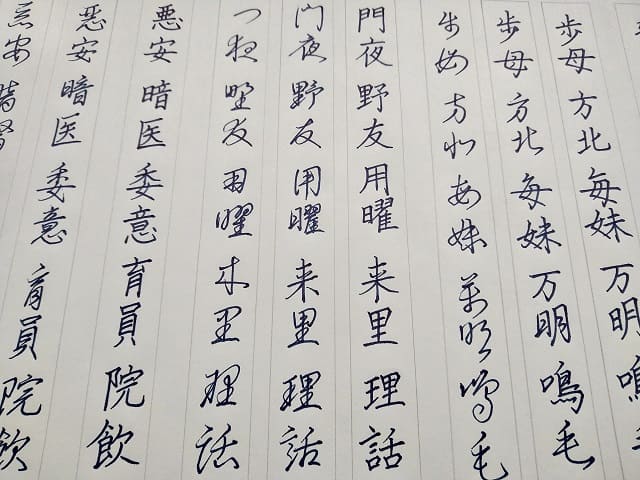 歩母方北毎妹万明鳴毛
歩母方北毎妹万明鳴毛
歩母方北毎妹万明鳴毛
門夜野友用曜来里理話
門夜野友用曜来里理話
門夜野友用曜来里理話
悪安暗医委意育員院飲
悪安暗医委意育員院飲
悪安暗医